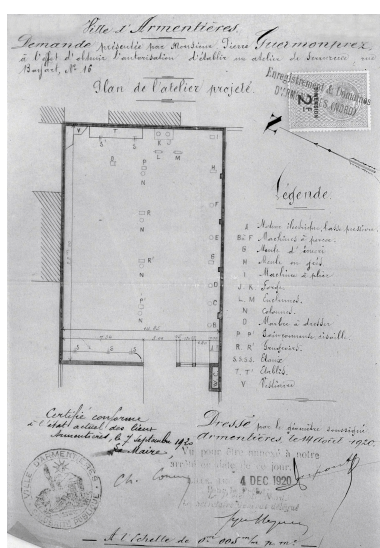 Ville d'Armentières.
Demande présentée par Monsieur Pierre Guermonprez
à l'effet d'obtenir l'autorisation d'établir un atelier de Serrurerie rue
Bayart, Nº 16
Plan de l'atelier projeté.
Enregistrement & Domaines
D'ARMENTIÈRES (NORD)
DIMENSION
2F
Légende.
A Moteur électrique, basse pression.
B à F Machines à percer.
G Meule d'émeri
H Meule en grès
I Machine à plier
J. K Forge
L. M Enclumes
N Colonnes
O Marbre à dresser
P. P'
R R'
S.S.S.S. Etaux
T. T' Etablis
V Vestiaire
Certifié conforme
à l'état actuel des lieux
Armentières, le 7 septembre 1920
Le Maire,
VILLE D'ARMENTIÈRES
Dressé par le géomètre soussigné
Armentières le 14 août 1920.
Vu pour être annexé à notre
arrêté en date de ce jour.
4 DEC 1920
A l'Echelle de 0m 005 m/m p. m.